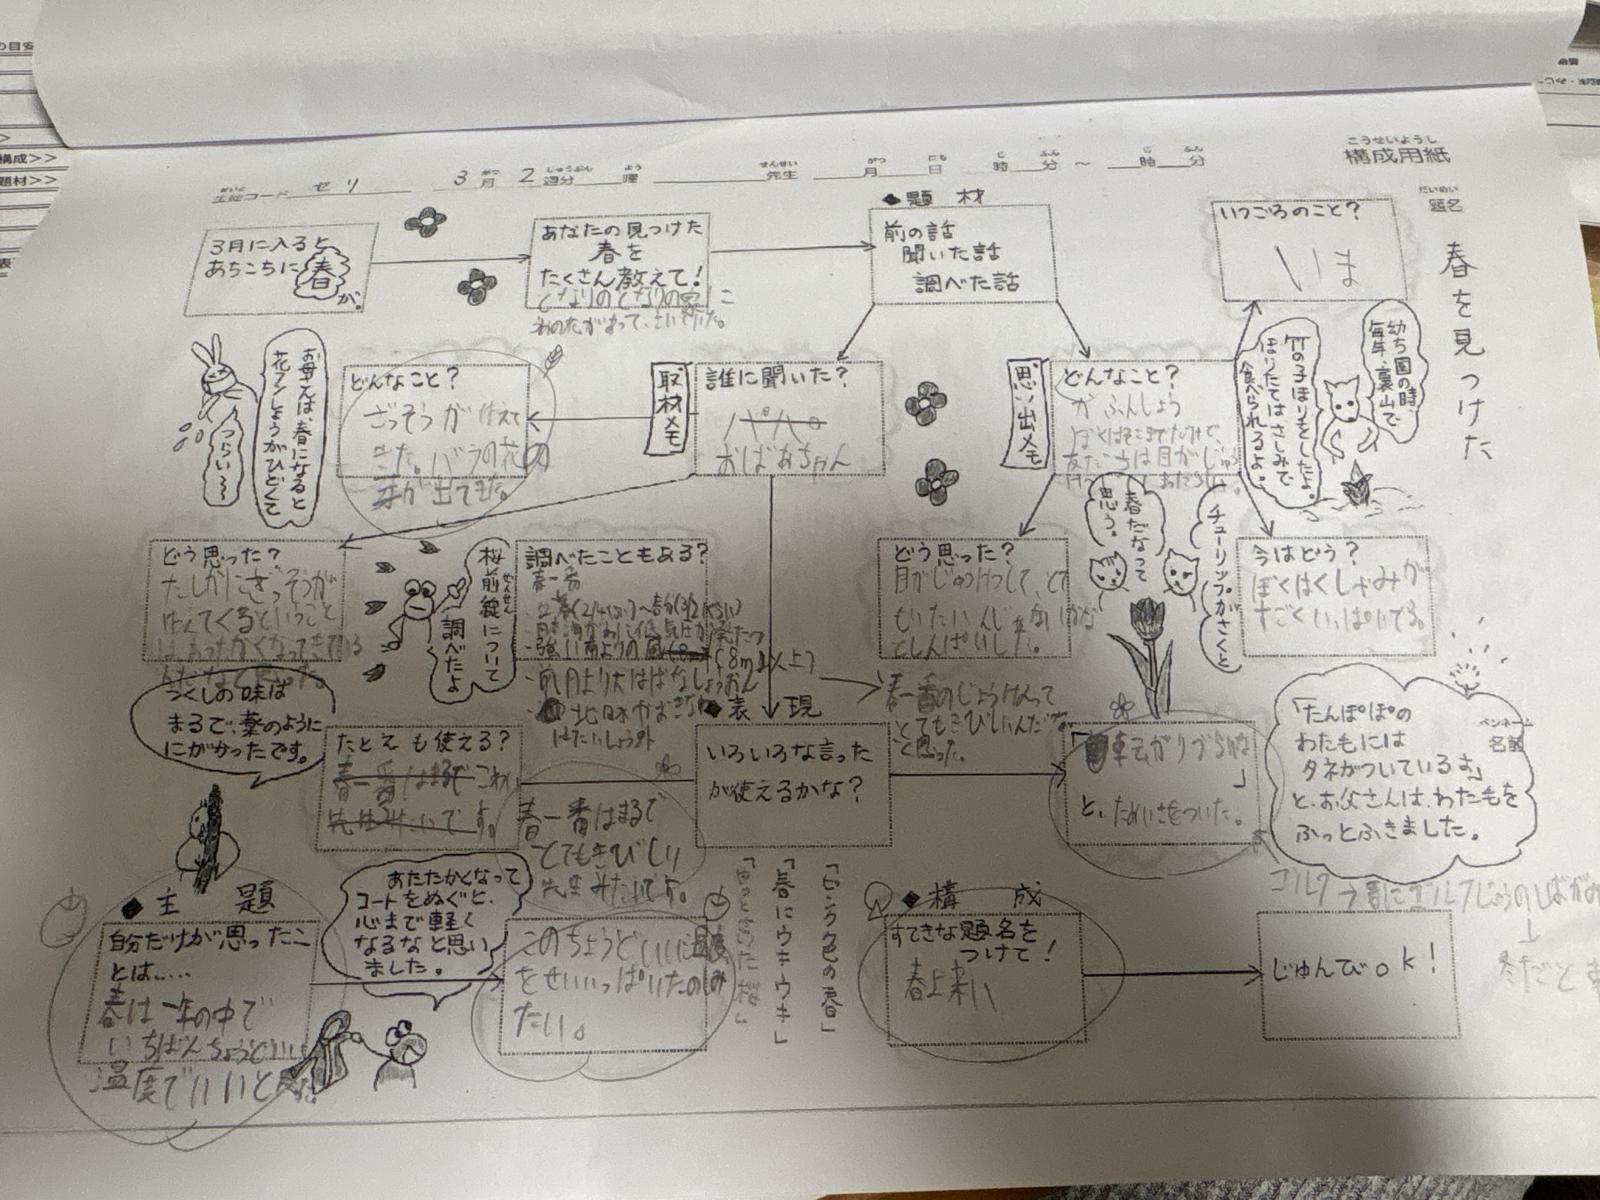 構成用紙
こうせいようし
生徒コード セリ 3月 2週分 曜 先生 月 日 時 分 〜 時 分
だいめい
題名
春を見つけた
3月に入ると
あちこちに春
が。
あなたの見つけた
春を
たくさん教えて!
となりのとなりの家に
◆題材
前の話
聞いた話
調べた話
いつごろのこと?
いま
幼ち園の時、
毎年、裏山で
竹の子ほりをしたよ。
ほりたてはさしみで
食べられるよ。
思い出メモ
どんなこと?
かふんしょう
友だちは目がじゅう
取材メモ
誰に聞いた?
パパ
おばあちゃん
どんなこと?
ざっそうがはえて
きた。バラの花の
芽が出てきた。
お母さんは、春になると
花フンしょうがひどくて
つらい〜
どう思った?
たしかにざっそうが
はえてくるということ
はあったかくなってきている
んだなと思った。
桜前線について
ぜんせん
調べたよ
調べたこともある?
春一番
・立春(2/4ぐらい)〜春分(3/21ぐらい)
・日本海がわに低気圧が発たつ
・強い南よりの風(8m以上)
・前日より大はばなしょうおん
はたいしょう外
春一番のじょうけんって
とてもきびしいんだな
と思った。
どう思った?
目がじゅうけつして、とて
もいたいんじゃないかな
としんぱいした。
春だなって
思う。
チューリップがさくと
今はどう?
ぼくはくしゃみが
すごくいっぱいでる。
つくしの味は
まるで、薬のように
にがかったです。
たとえも使える?
春一番はまるでこわい
先生みたいです。
春一番はまるで
とてもきびしい
先生みたいです。
◆表現
いろいろな言った
が使えるかな?
転がりづらいな
」
と、ためいきをついた。
ペンネーム
名前
「たんぽぽの
わたもには
タネがついているよ」
と、お父さんは、わたもを
ふっとふきました。
ゴルフ
今書にゴルフじょうのしばがみ
↓
冬だと
◆主題
自分だけが思ったこ
とは.....
春は一年の中で
いちばんちょうどいい
温度でいいと思った。
あたたかくなって
コートをぬぐと、
心まで軽く
なるなと思い
ました。
このちょうどいい温度
をせいいっぱいたのしみ
たい。
「ピンク色の春」
「春にウキウキ」
◆構成
すてきな題名を
つけて!
春上来い
じゅんびok!